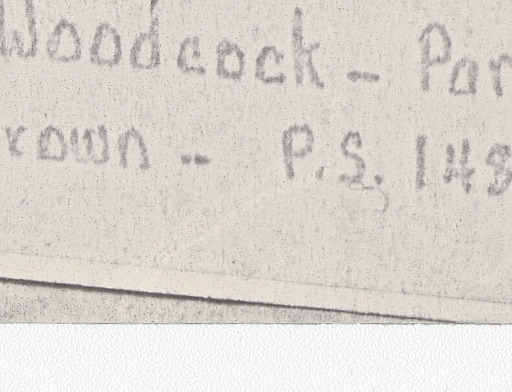 Woodcock - Par
rown - P.S. 148